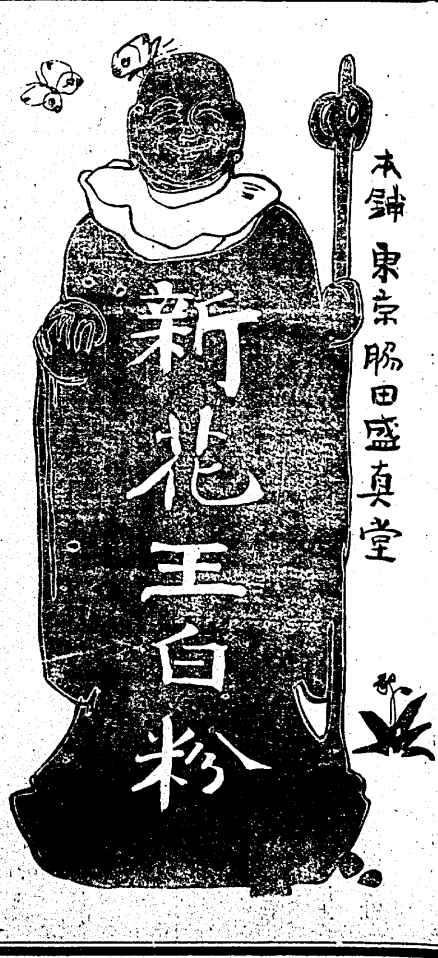 本舗 東京 脇田盛真堂
新花王白粉